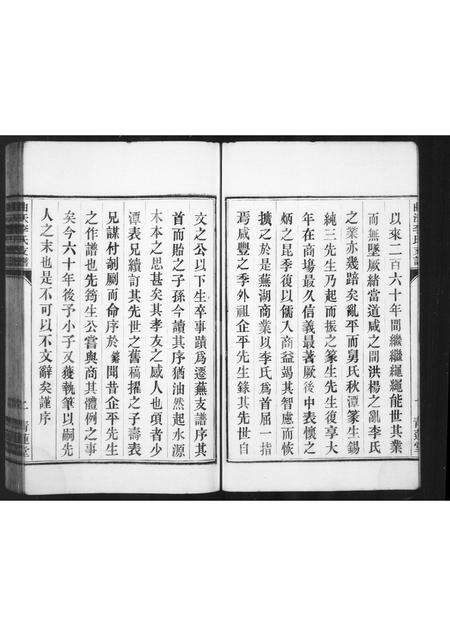 以來二百六十年間繼繼繩繩能世其業
而無墜厥緒當道咸之間洪楊之亂李氏
之業亦幾踣矣亂平而舅氏秋潭篆生錫
純三先生乃起而振之篆生先生復享大
年在商場最久信義最著厥後中表懷之
炳之昆季復以儒入商益竭其智慮而恢
擴之於是蕪湖商業以李氏爲首屈一指
焉咸豐之季外祖企平先生錄其先世自
文之公以下生卒事蹟爲遷蕪支譜序其
首而貽之子孫今讀其序猶油然起水源
木本之思甚矣其孝友之感人也項者少
潭表兄續訂其先世之舊稿擢之子壽表
兄謀付剞劂而命序於 聞昔企平先生
之作譜也先筠生公嘗與商其體例之事
矣今六十年後予小子又獲執筆以嗣先
人之末也是不可以不文辭矣謹序
李氏支譜
青蓮堂